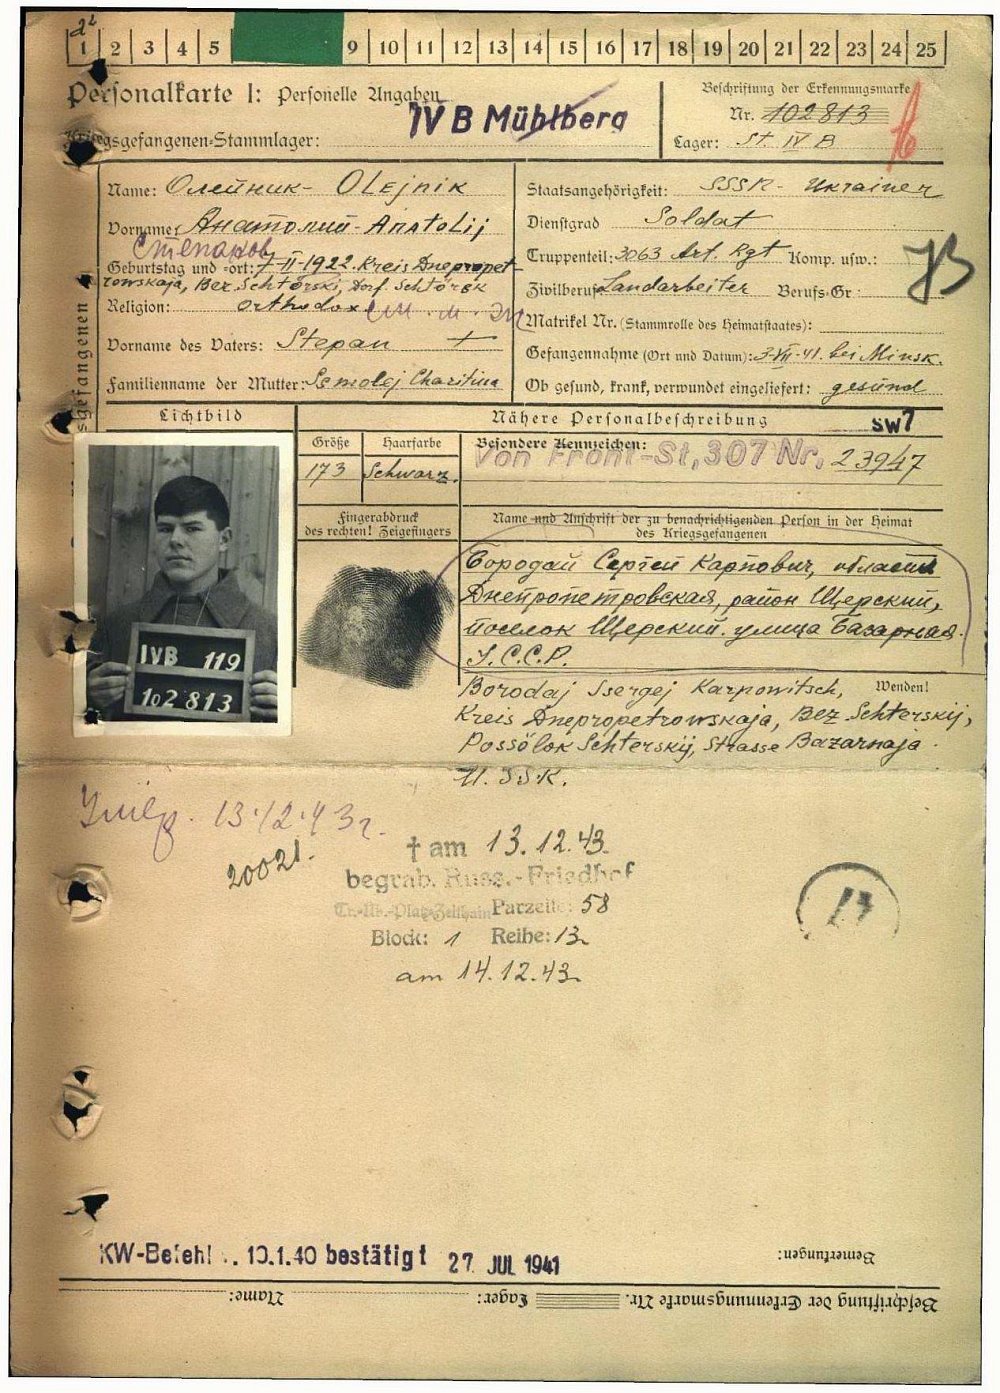 1 2 3 4 5 9 10 11 12 13 14 15 16 17 18 19 20 21 22 23 24 25
Personalkarte I: Personelle Angaben
IV B Mühlberg
Kriegsgefangenen-Stammlager:
Beschriftung der Erkennungsmarke
Nr. 102813
Lager: St. IV B
Name: Олейник - OLejnik
Vorname: Анатолий - Anatolij
Степанов
Geburtstag und -ort: 7-II-1922. Kreis Dnepropet-
rowskaja, Bez. Schtorski, Dorf. Schtorsk
Religion: orthodox
Vorname des Vaters: Stepan +
Familienname der Mutter: Semolej Charitina
Staatsangehörigkeit: SSSR - Ukrainer
Dienstgrad Soldat
Truppenteil: 3063 Art. Rgt Komp. usw.:
Zivilberuf: Landarbeiter Berufs-Gr.:
Matrikel Nr. (Stammrolle des Heimatstaates):
Gefangennahme (Ort und Datum): 3-VII-41. bei Minsk.
Ob gesund, krank, verwundet eingeliefert: gesund
des Kriegsgefangenen
Lichtbild
Nähere Personalbeschreibung
SW7
Größe Haarfarbe Besondere Kennzeichen:
173 Schwarz.
Von Front-St, 307 Nr. 23947
Fingerabdruck
des rechten! Zeigefingers
Name und Anschrift der zu benachrichtigenden Person in der Heimat
des Kriegsgefangenen
Бородай Сергей Карпович, область
Днепропетровская, район Щерский,
поселок Щерский. улица Базарная.
У.С.С.Р.
IVB 119
102813
Borodaj Ssergej Karpowitsch, Wenden!
Kreis Dnepropetrowskaja, Bez. Schterskij,
Possölok Schterskij, Strasse Bazarnaja.
U.S.S.R.
13.12.43г.
20021.
† am 13.12.43.
begrab. Russ.-Friedhof
Tr.-Üb.-Platz Zeithain Parzelle: 58
Block: 1 Reihe: 13
am 14.12.43.
KW-Befehl .. 10.1.40 bestätigt 27. JUL 1941
Bemerkungen:
Name: Lager: Beschriftung der Erkennungsmarke Nr.